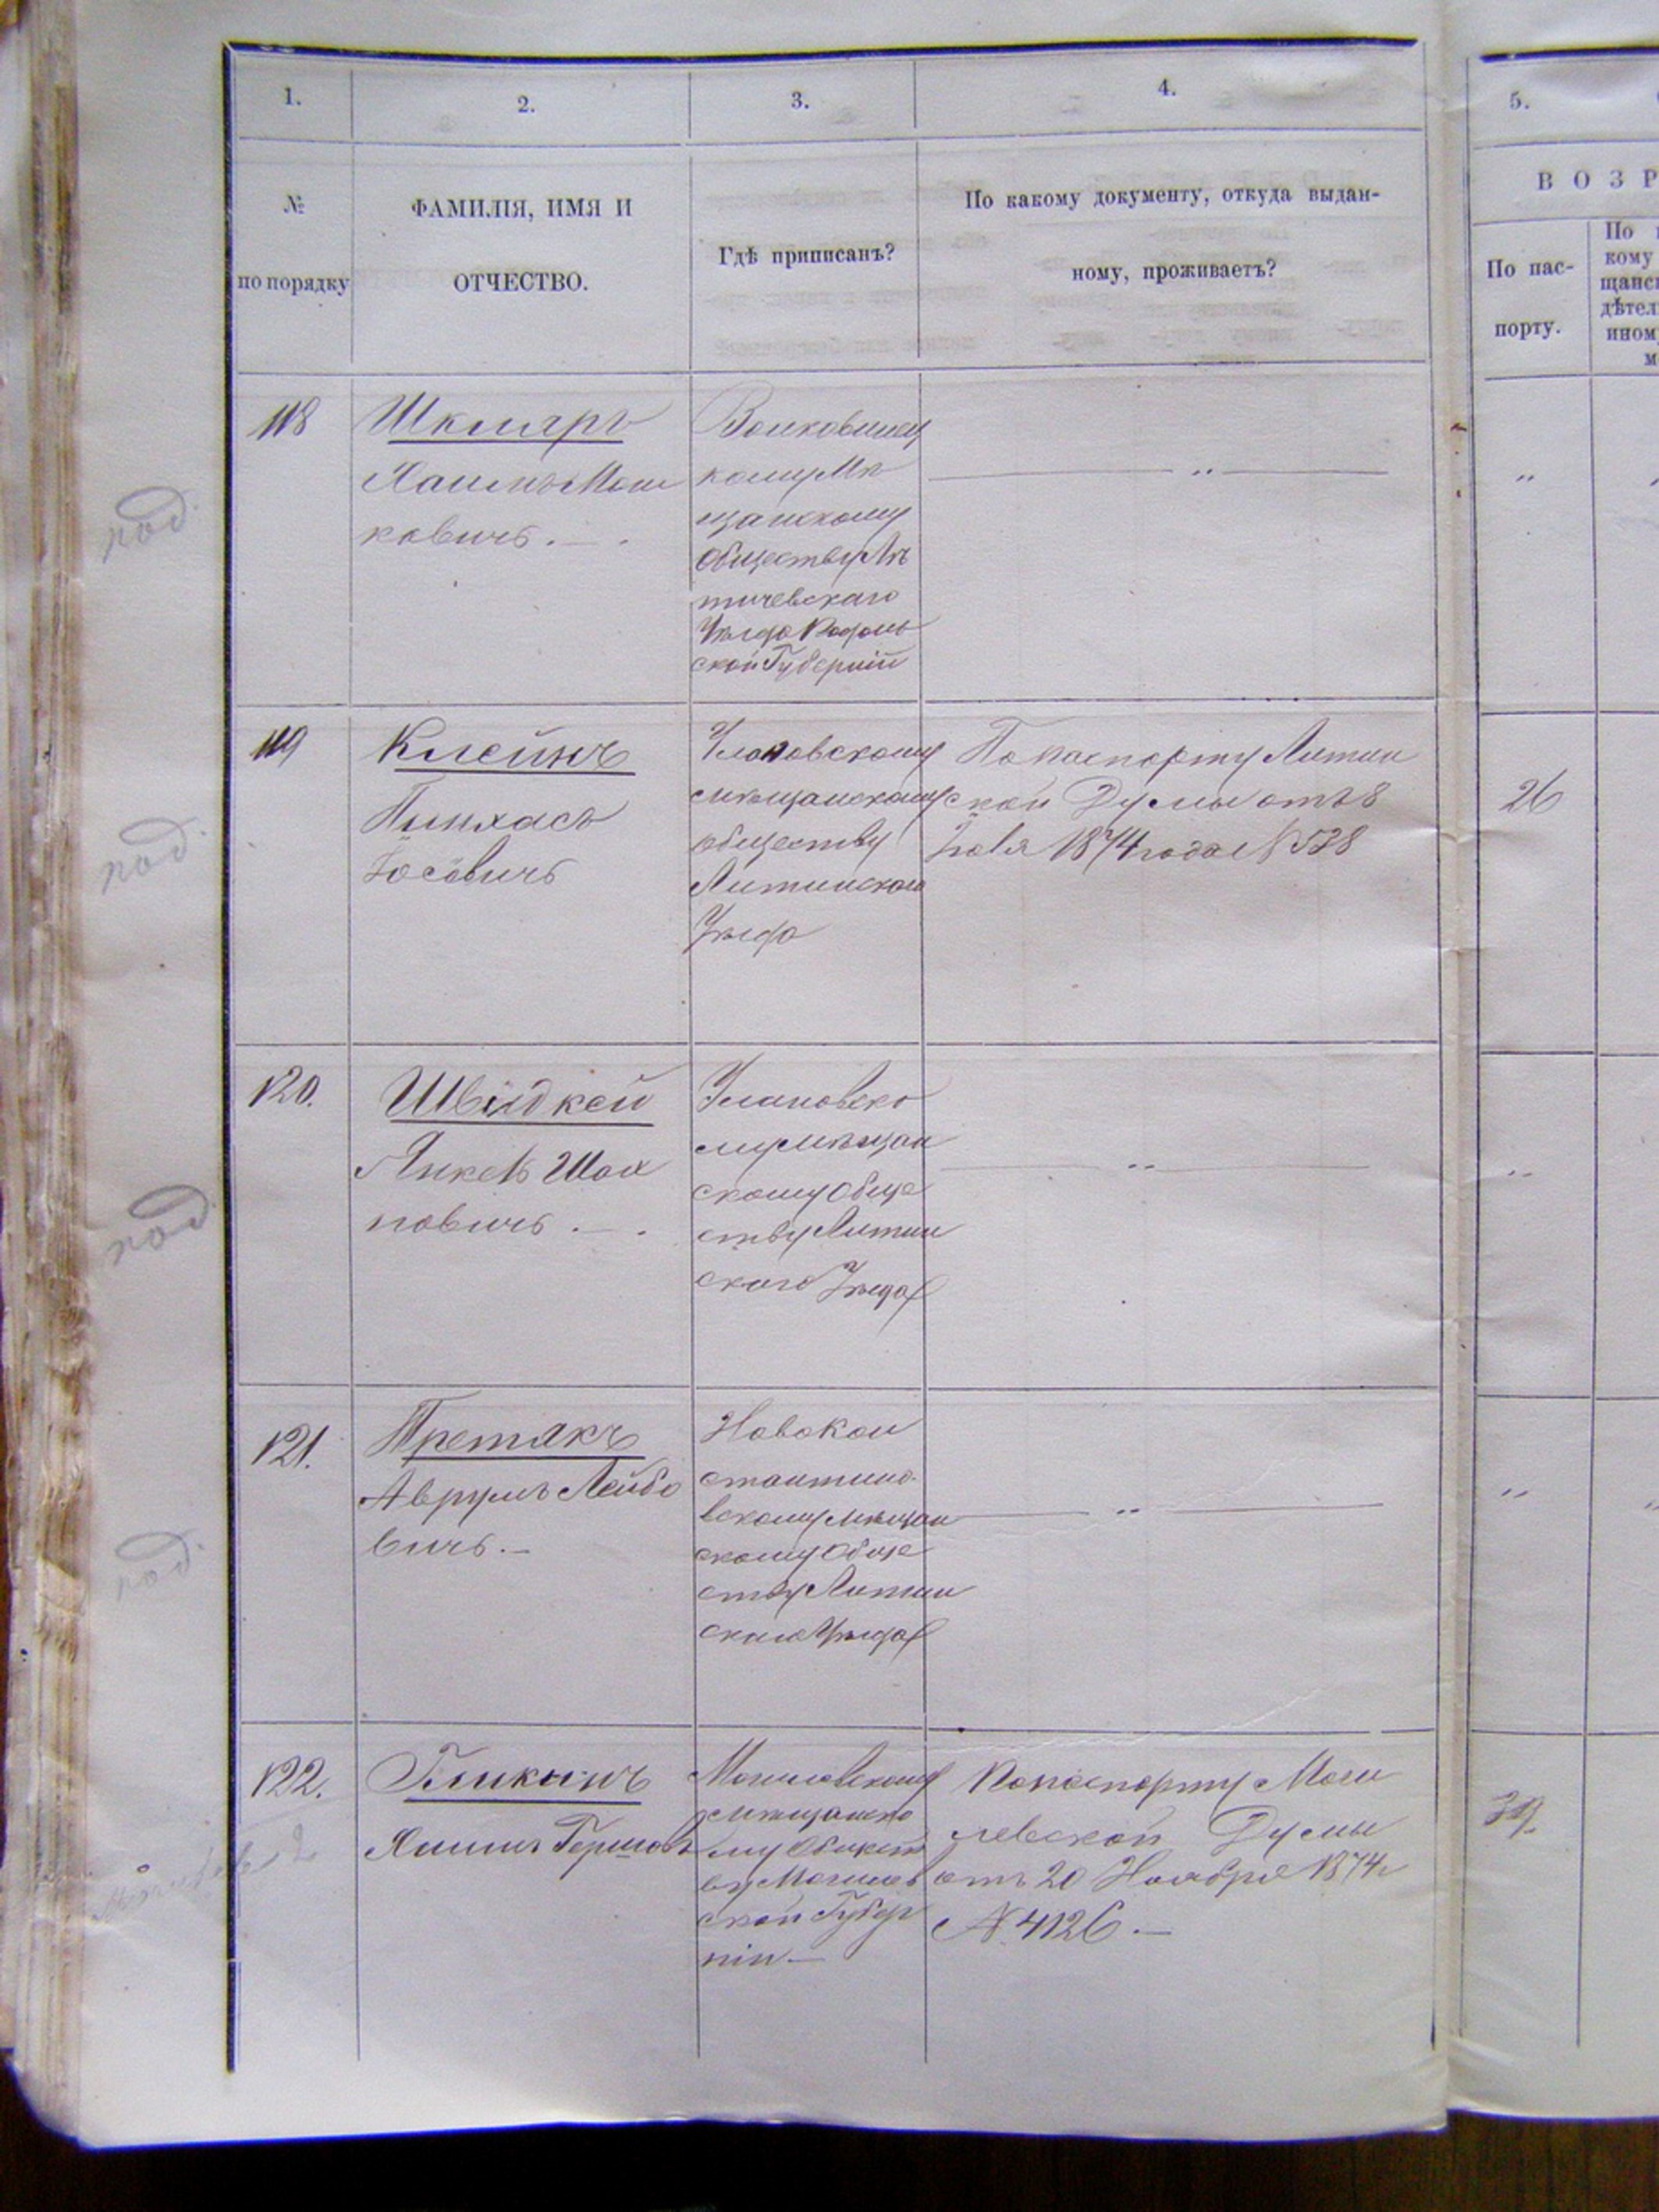 1.
2.
3.
4.
5.
№
по порядку
ФАМИЛІЯ, ИМЯ И
ОТЧЕСТВО.
Гдѣ приписанъ?
По какому документу, откуда выдан-
ному, проживаетъ?
В О З Р
По пас-
порту.
По
кому
дѣтел
ином
м
под.
118
Шкляръ
Хаимъ Мош
ковичъ. — .
Волковинец
кому Мѣ
щанскому
обществу Лѣ
тичевскаго
Уѣзда Подоль
ской Губерніи
— " —
"
под.
119
Клейнъ
Пинхасъ
Іосевичъ
Улановскому
мѣщанскому
обществу
Литинскаго
Уѣзда
По паспорту Литин
ской Думы отъ 8
1874 года № 538
26
под.
120.
Швидкей
Янкель Шах
новичъ. — .
Улановско
му мѣщан
скому обще
ству Литин
скаго Уѣзда
— " —
"
под.
121.
Третякъ
Аврумъ Лейбо
вичъ. —
Новокон
стантино-
вскому мѣщан
скому обще
ству Литин
скаго Уѣзда
— " —
"
122.
Гершов
Могилевскому
мѣщанско
му Общест
ву Могилев
ской Губер
ніи —
По паспорту Моги
левской Думы
отъ 20 Ноября 1874г
№ 4126. —